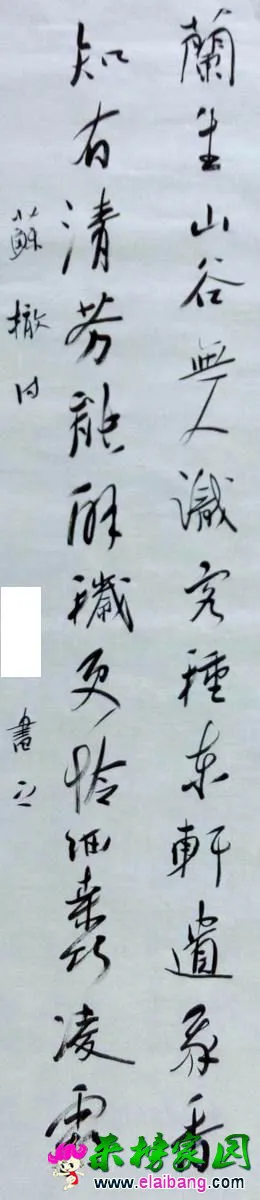 蘭生山谷無人識客種东軒遺我香
知有清芬能解穢更怜細葉巧凌霜
蘇轍诗 書之
来榜家园
www.elaibang.com